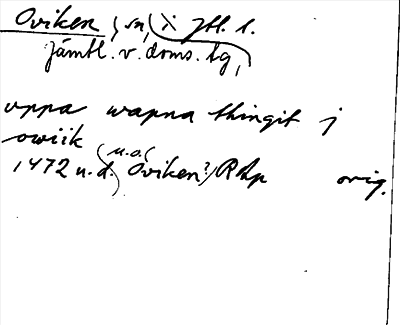 Oviken, sn, i Jtl. l.
Jämtl. v. doms. tg,
uppa wapna thingit j
owiik
(u.o.)
1472 u.d. Oviken? RAp orig.